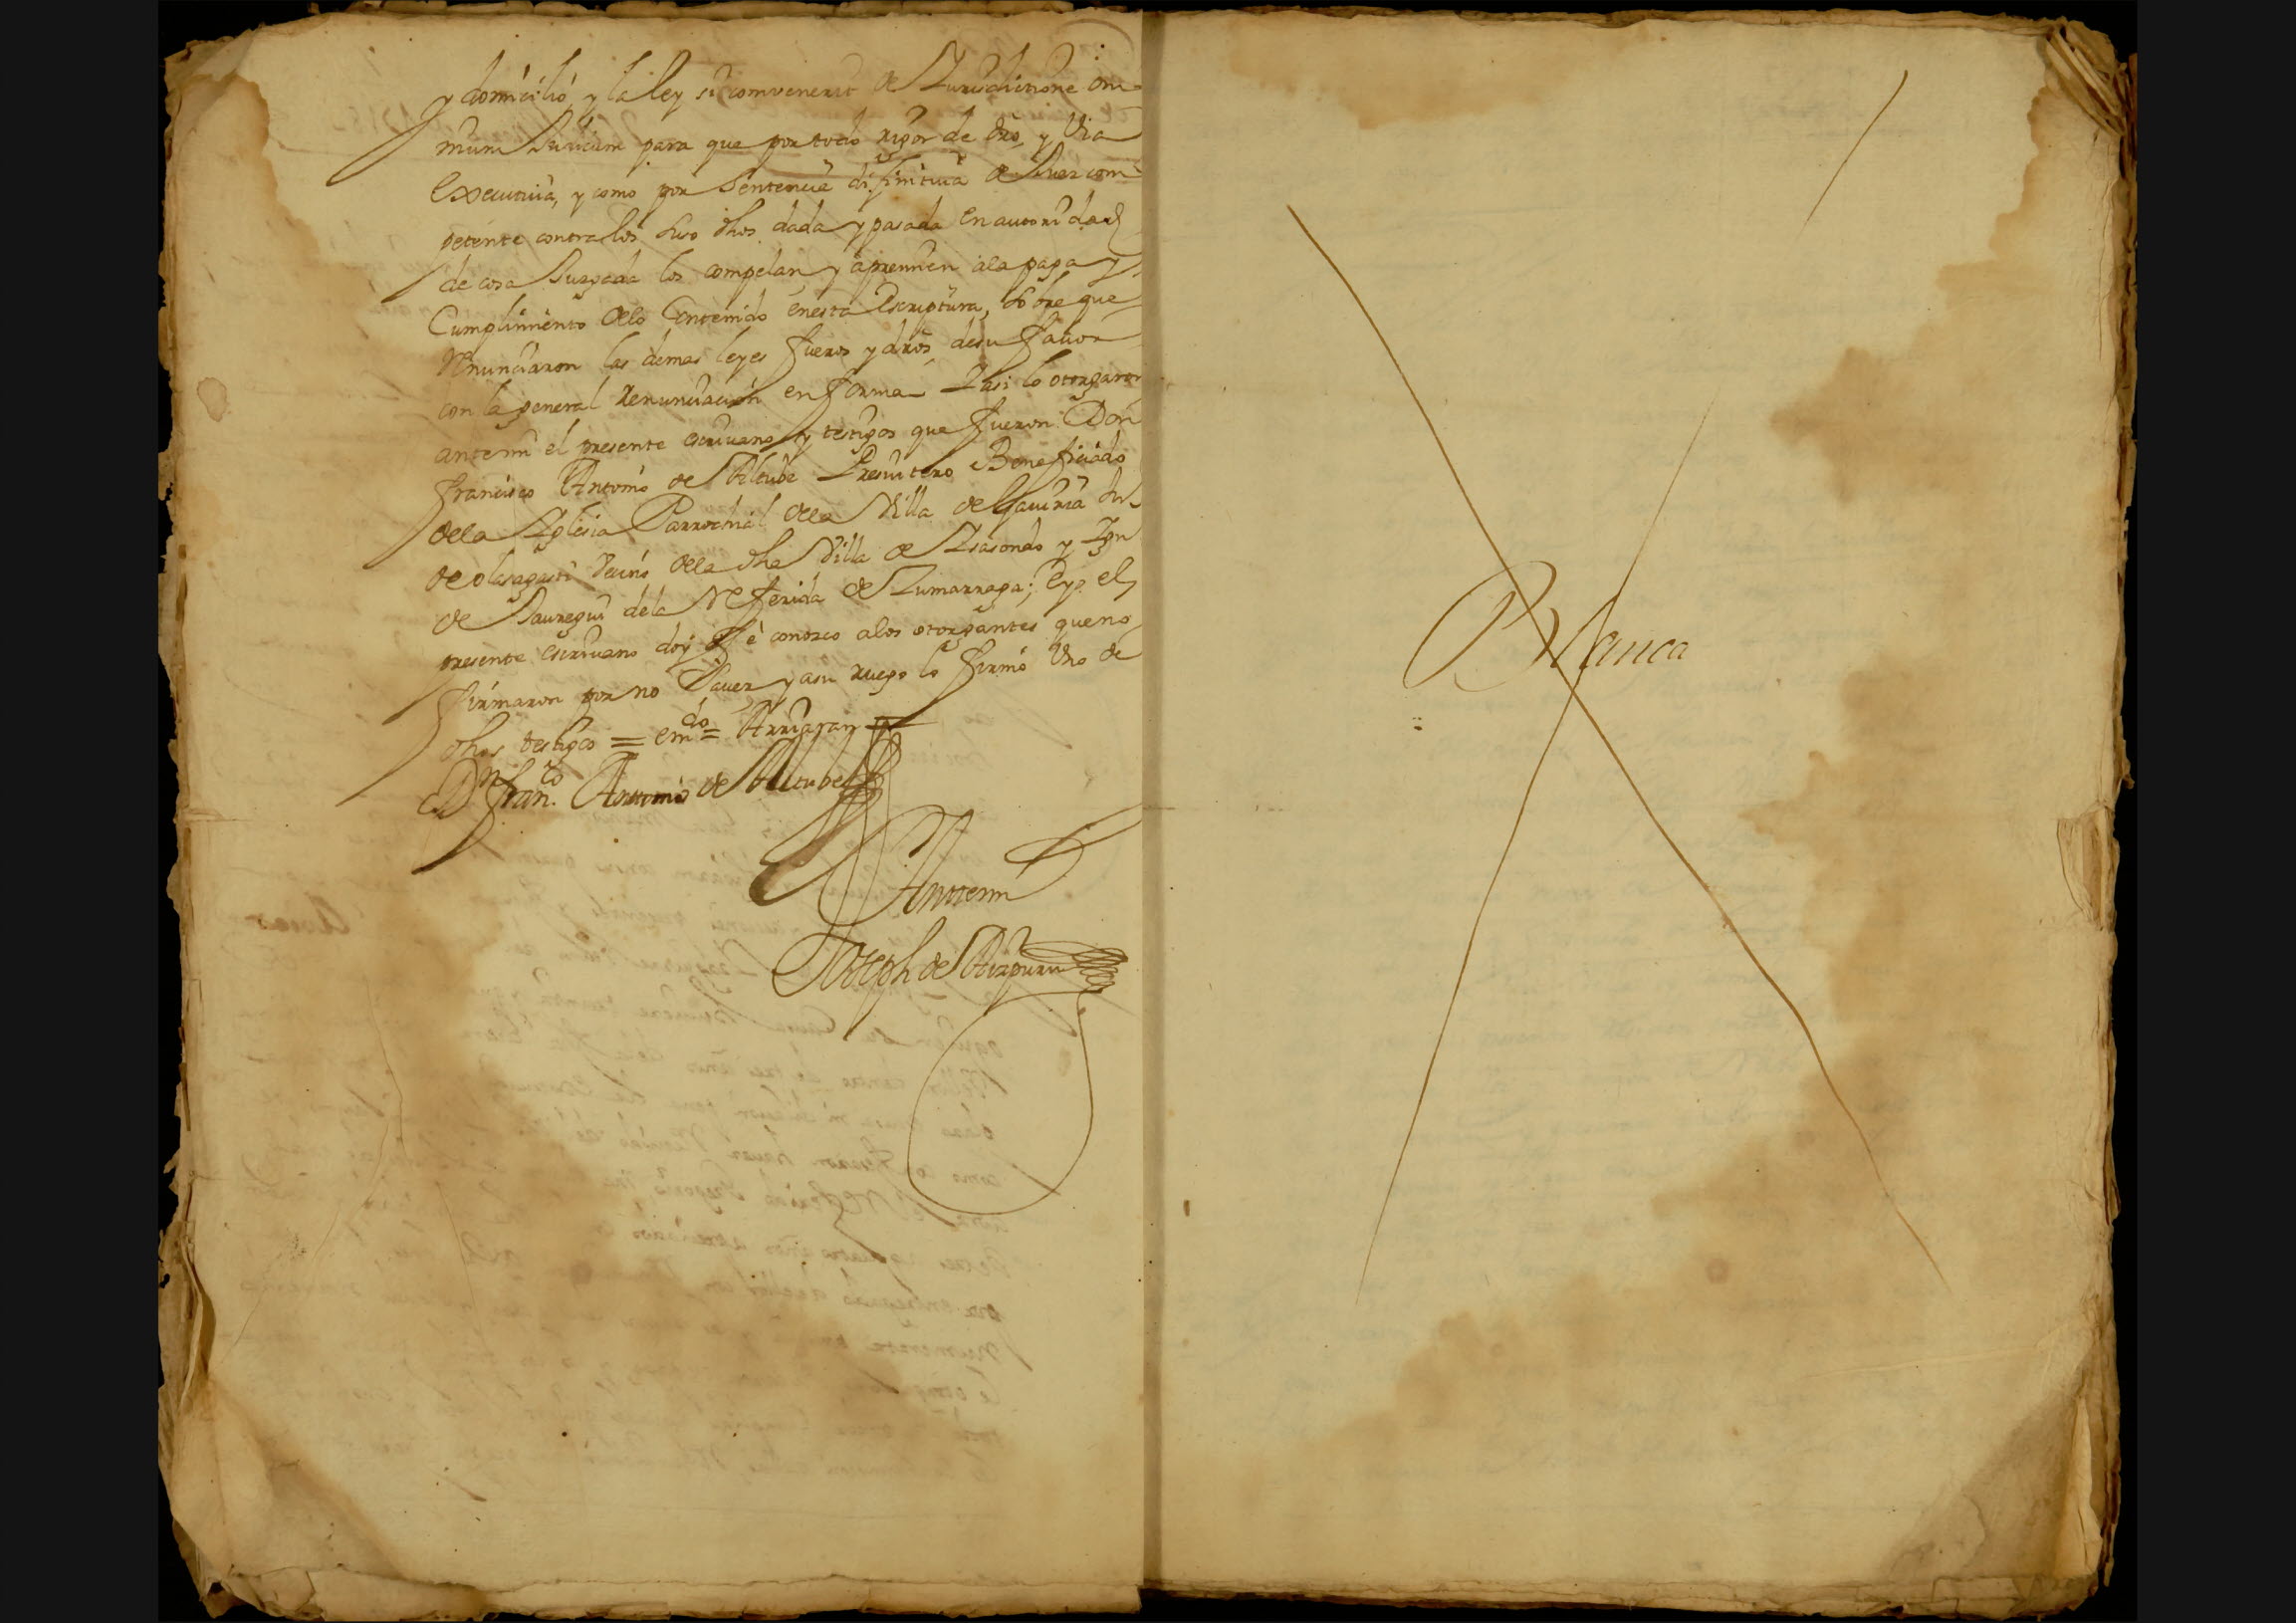 y domicilio, y la ley si combenerit de Jurisdictione om
nium Judicum para que por todo rigor de dro, y via
executiva, y como por sentencia difinitiva de Juez com
petente contra los suso dhos dada y pasada en autoridad
de cosa Juzgada los compelan y apremien ala paga y
Cumplimiento dello Contenido enesta Escriptura, sobre que
Renunciaron las demas leyes fueros y dros desu favor
con la general Renunciacion en forma Y asi lo otorgaron
antemi el presente escrivano y testigos que fueron Don
francisco Antonio de Altube Presvitero Beneficiado
dela Iglesia Parrochial dela Villa de Gaviria
de olasagasti vecino dela dha Villa de Isasondo y Ign
de Jauregui dela Referida de Zumarraga; Eyo el
presente escrivano doy feè conozco alos otorgantes que no
firmaron por no saver y asu ruego lo firmó Uno de
dhos testigos = em.do = Arriaran =
Dn fran.co Antonio de Altube
Anttemi
Joseph de Aizpuru
Blanca